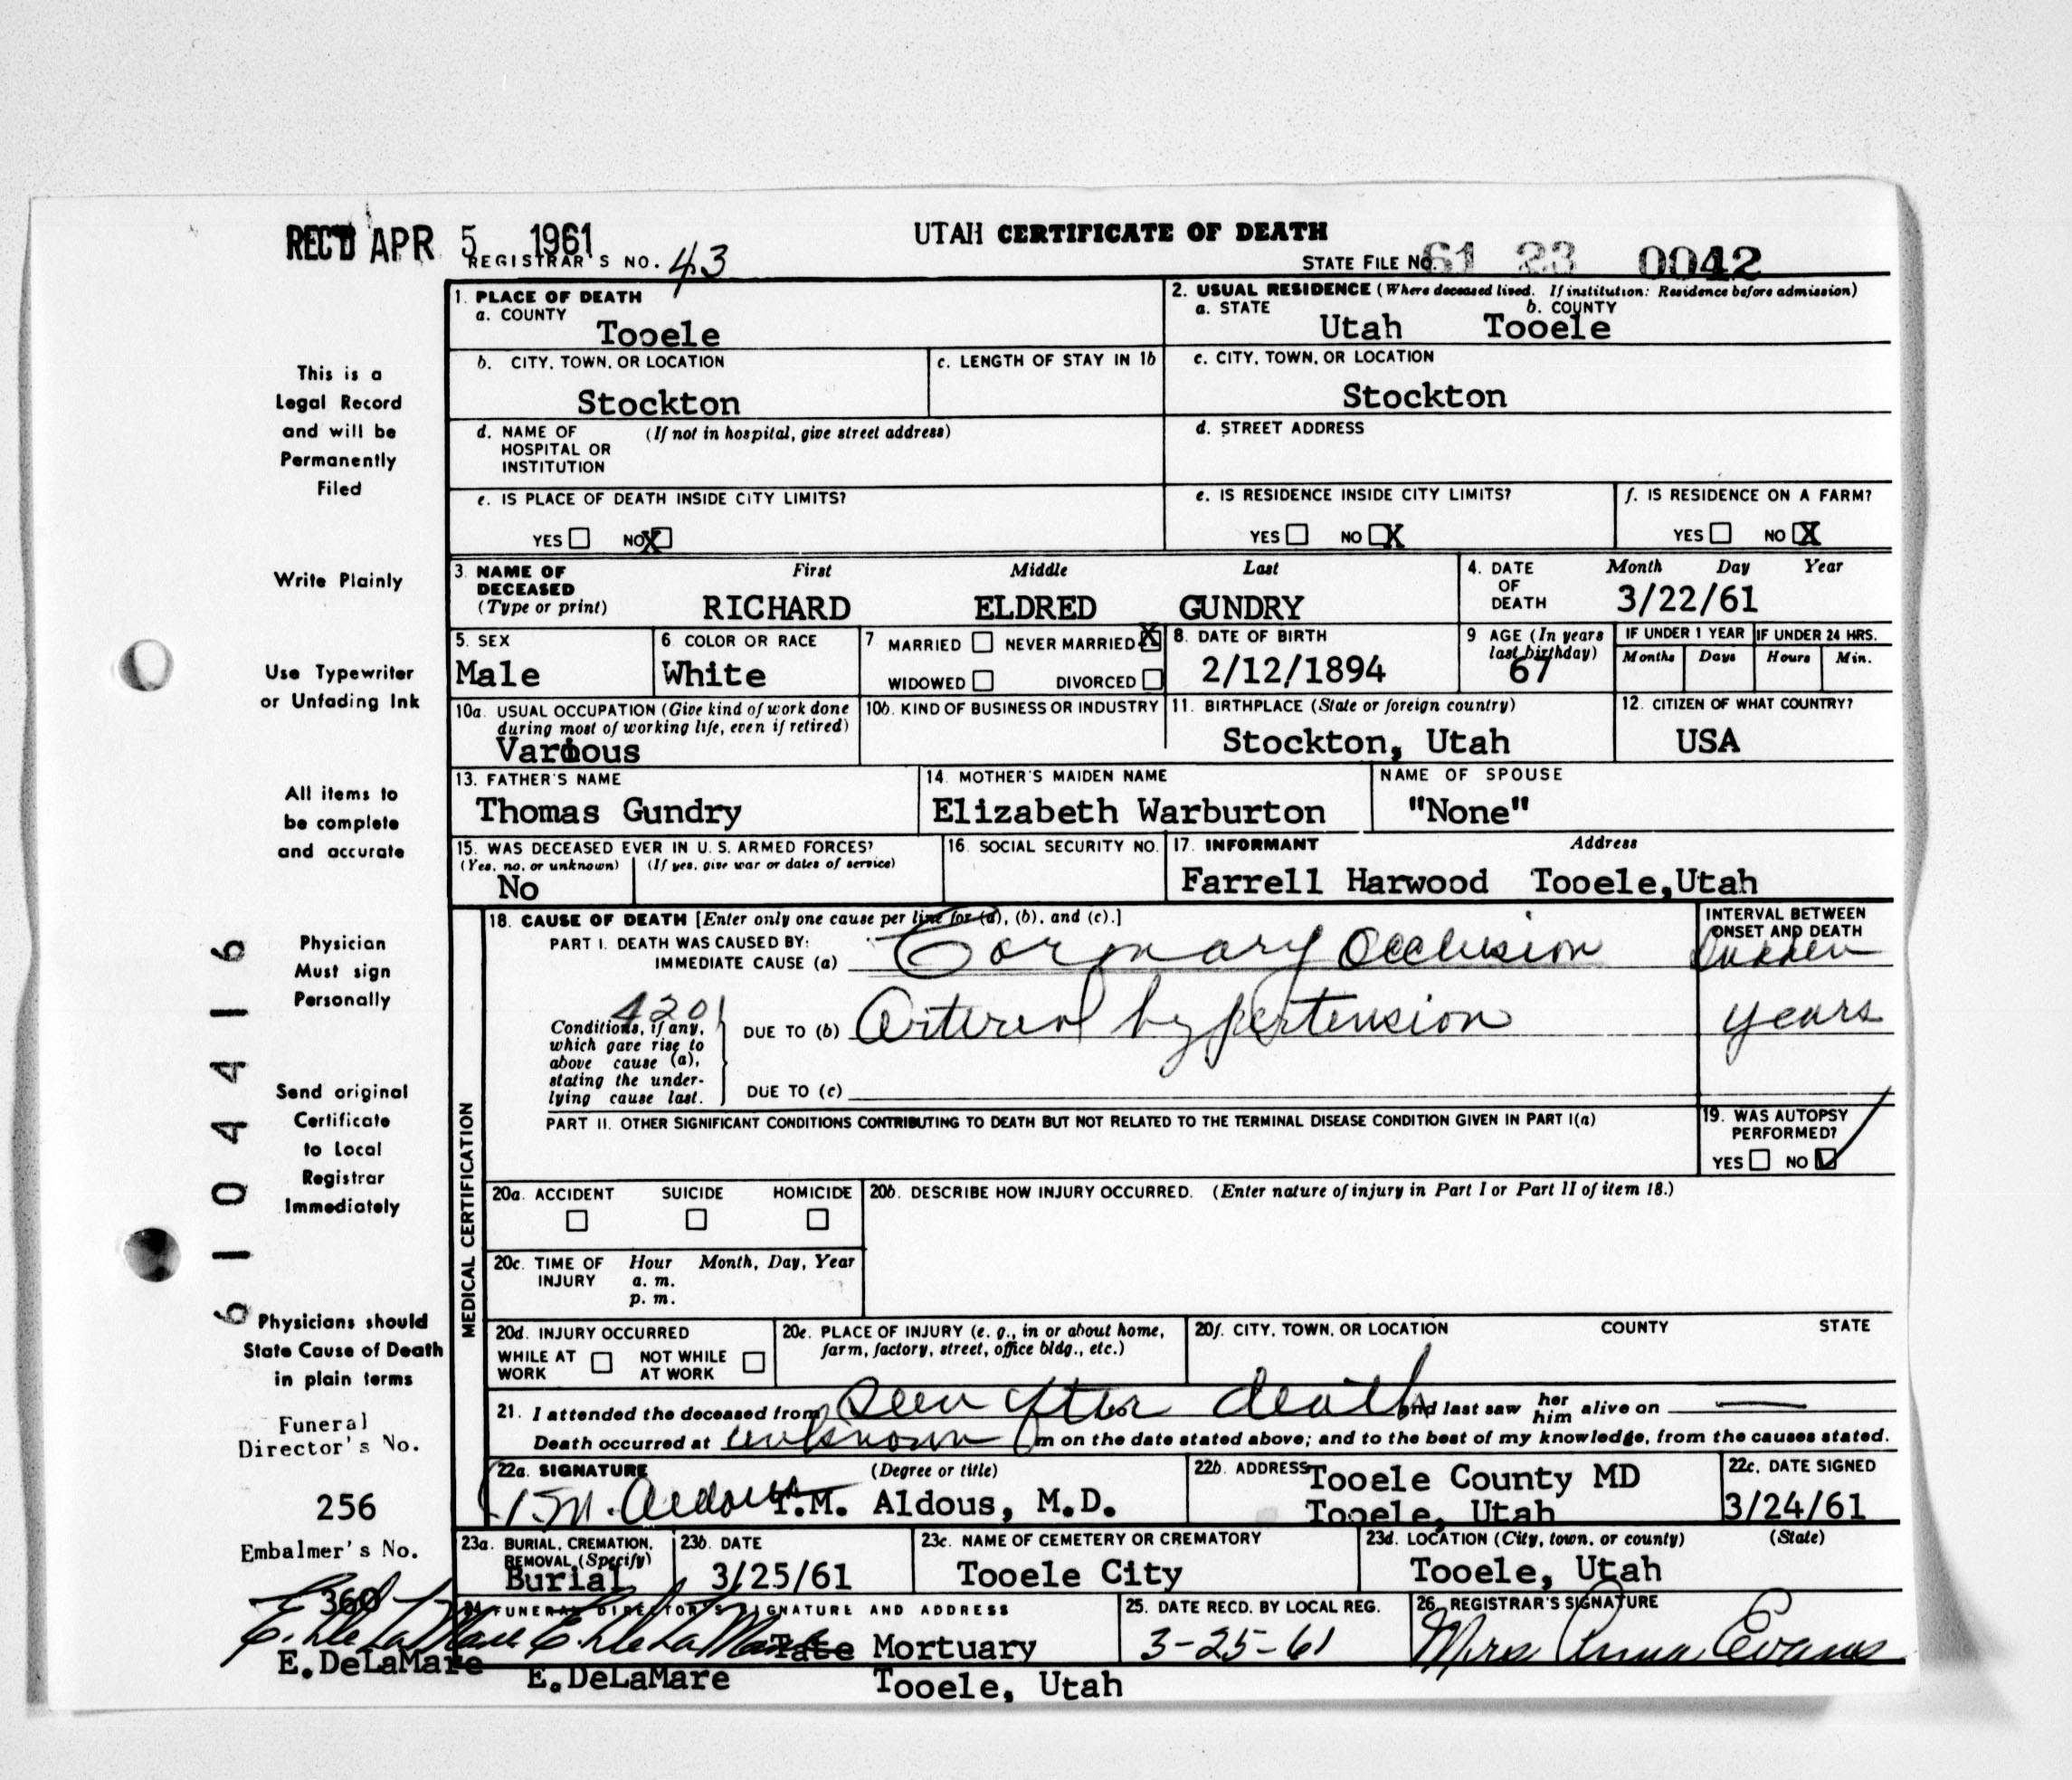 REC'D APR 5 1961
UTAH CERTIFICATE OF DEATH
REGISTRAR'S NO. 43
STATE FILE NO. 61 23 0042
1. PLACE OF DEATH
a. COUNTY
Tooele
2. USUAL RESIDENCE (Where deceased lived. If institution: Residence before admission)
a. STATE b. COUNTY
Utah Tooele
b. CITY, TOWN, OR LOCATION
Stockton
c. LENGTH OF STAY IN 1b
c. CITY, TOWN, OR LOCATION
Stockton
d. NAME OF (If not in hospital, give street address)
HOSPITAL OR
INSTITUTION
d. STREET ADDRESS
e. IS PLACE OF DEATH INSIDE CITY LIMITS?
YES NO X
e. IS RESIDENCE INSIDE CITY LIMITS?
YES NO X
f. IS RESIDENCE ON A FARM?
YES NO X
3. NAME OF DECEASED First Middle Last
(Type or print)
RICHARD ELDRED GUNDRY
4. DATE OF DEATH Month Day Year
3/22/61
5. SEX
Male
6. COLOR OR RACE
White
7 MARRIED NEVER MARRIED X
WIDOWED DIVORCED
8. DATE OF BIRTH
2/12/1894
9 AGE (In years last birthday)
67
IF UNDER 1 YEAR IF UNDER 24 HRS.
Months Days Hours Min.
10a. USUAL OCCUPATION (Give kind of work done
during most of working life, even if retired)
Various
10b. KIND OF BUSINESS OR INDUSTRY
11. BIRTHPLACE (State or foreign country)
Stockton, Utah
12. CITIZEN OF WHAT COUNTRY?
USA
13. FATHER'S NAME
Thomas Gundry
14. MOTHER'S MAIDEN NAME
Elizabeth Warburton
NAME OF SPOUSE
"None"
15. WAS DECEASED EVER IN U. S. ARMED FORCES?
(Yes, no, or unknown) (If yes, give war or dates of service)
No
16. SOCIAL SECURITY NO.
17. INFORMANT Address
Farrell Harwood Tooele,Utah
MEDICAL CERTIFICATION
18. CAUSE OF DEATH [Enter only one cause per line for (a), (b), and (c).]
PART I. DEATH WAS CAUSED BY:
IMMEDIATE CAUSE (a) Coronary Occlusion
INTERVAL BETWEEN
ONSET AND DEATH
Sudden
420
Conditions, if any,
which gave rise to
above cause (a),
stating the under-
lying cause last.
DUE TO (b) Arterial hypertension years
DUE TO (c)
PART II. OTHER SIGNIFICANT CONDITIONS CONTRIBUTING TO DEATH BUT NOT RELATED TO THE TERMINAL DISEASE CONDITION GIVEN IN PART I(a)
19. WAS AUTOPSY
PERFORMED?
YES NO ✓
20a. ACCIDENT SUICIDE HOMICIDE
20b. DESCRIBE HOW INJURY OCCURRED. (Enter nature of injury in Part I or Part II of item 18.)
20c. TIME OF INJURY Hour Month, Day, Year
a. m.
p. m.
20d. INJURY OCCURRED
WHILE AT WORK NOT WHILE AT WORK
20e. PLACE OF INJURY (e. g., in or about home,
farm, factory, street, office bldg., etc.)
20f. CITY, TOWN, OR LOCATION COUNTY STATE
21. I attended the deceased from Seen after death and last saw her him alive on —
Death occurred at unknown m on the date stated above; and to the best of my knowledge, from the causes stated.
22a. SIGNATURE (Degree or title)
T.M. Aldous T.M. Aldous, M.D.
22b. ADDRESS
Tooele County MD
Tooele, Utah
22c. DATE SIGNED
3/24/61
23a. BURIAL, CREMATION,
REMOVAL (Specify)
Burial
23b. DATE
3/25/61
23c. NAME OF CEMETERY OR CREMATORY
Tooele City
23d. LOCATION (City, town, or county) (State)
Tooele, Utah
24 FUNERAL DIRECTOR'S SIGNATURE AND ADDRESS
E. DeLaMare Tate Mortuary
E.DeLaMare Tooele, Utah
25. DATE RECD. BY LOCAL REG.
3-25-61
26. REGISTRAR'S SIGNATURE
Mrs Anna Evans
This is a
Legal Record
and will be
Permanently
Filed
Write Plainly
Use Typewriter
or Unfading Ink
All items to
be complete
and accurate
Physician
Must sign
Personally
Send original
Certificate
to Local
Registrar
Immediately
Physicians should
State Cause of Death
in plain terms
Funeral
Director's No.
256
Embalmer's No.
360
E. DeLaMare
E.DeLaMare
6 1 0 4 4 1 6